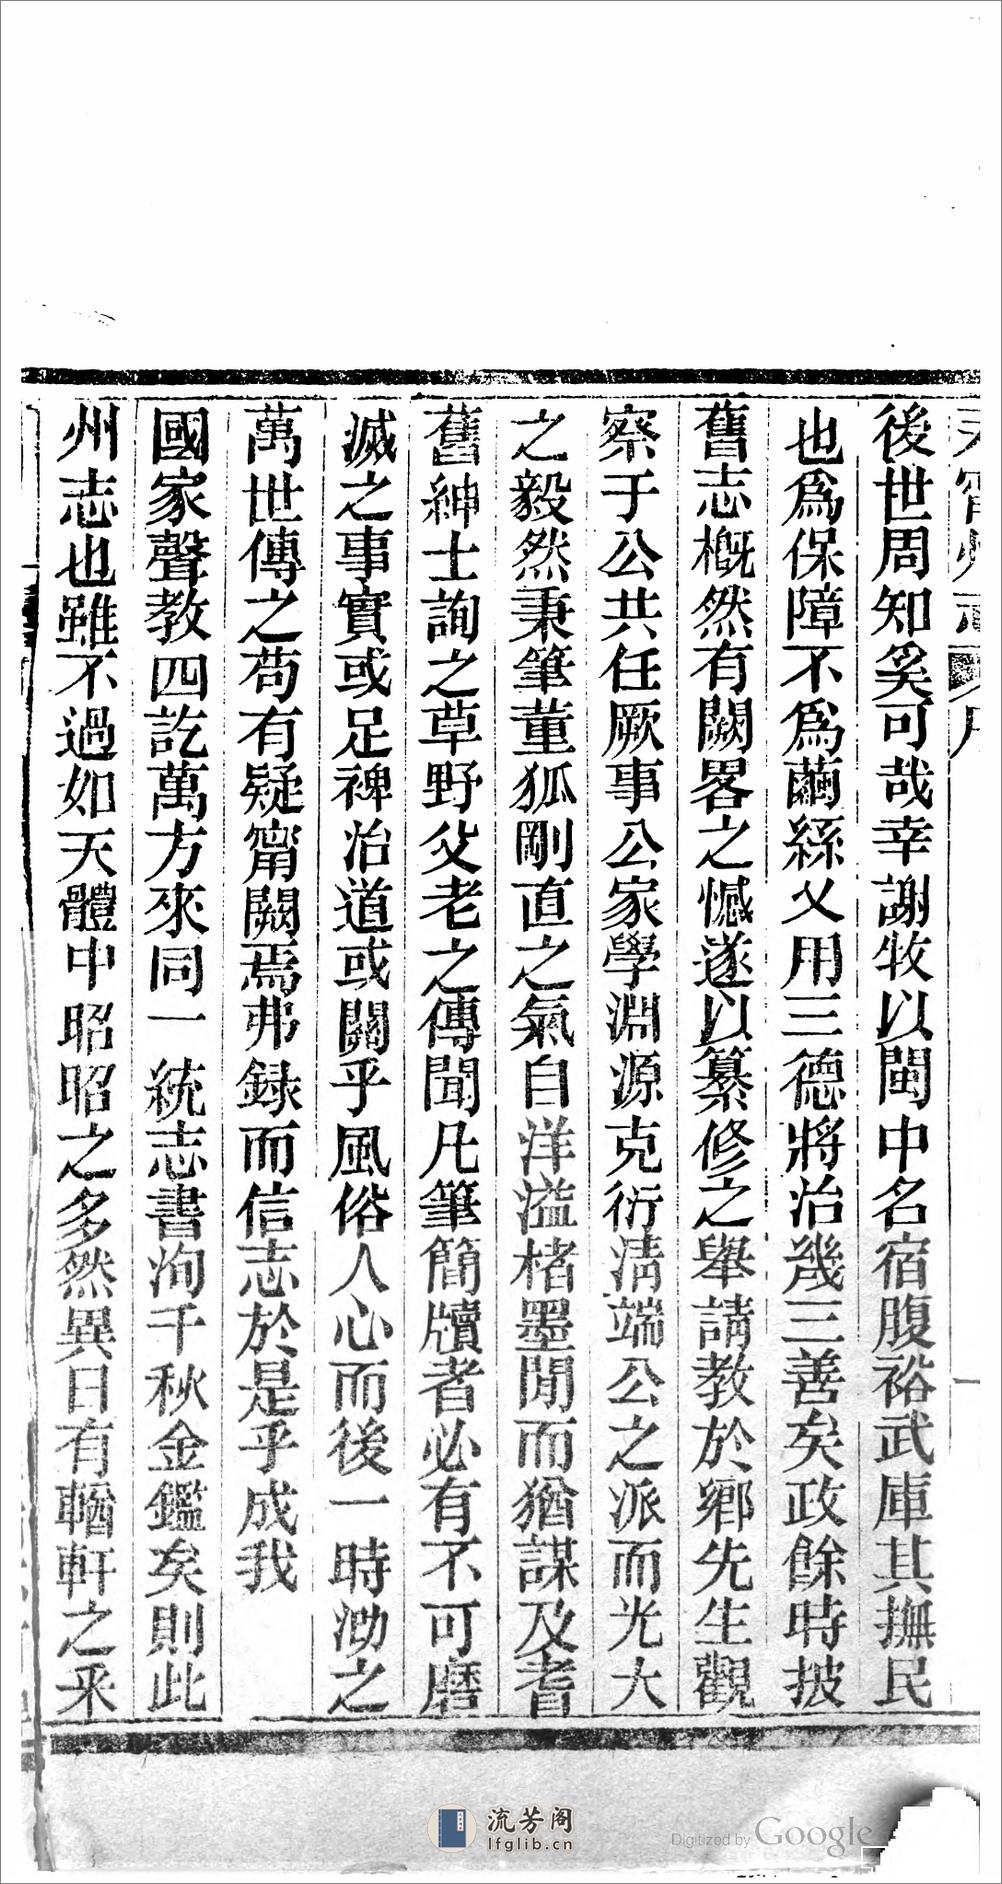 後世周知奚可哉幸謝牧以閩中名宿腹裕武庫其撫民
也爲保障不爲繭絲乂用三德將治幾三善矣政餘時披
舊志概然有闕畧之憾遂以纂修之舉請教於鄉先生觀
察于公共任厥事公家學淵源克衍淸端公之派而光大
之毅然秉筆董狐剛直之氣自洋溢楮墨閒而猶謀及耆
舊紳士詢之草野父老之傳聞凡筆簡牘者必有不可磨
滅之事實或足裨治道或關乎風俗人心而後一時泐之
萬世傳之苟有疑甯闕焉弗録而信志於是乎成我
國家聲教四訖萬方來同一統志書洵千秋金鑑矣則此
州志也雖不過如天體中昭昭之多然異日有輶軒之采
流芳阁
lfglib.cn
Digitized by Google